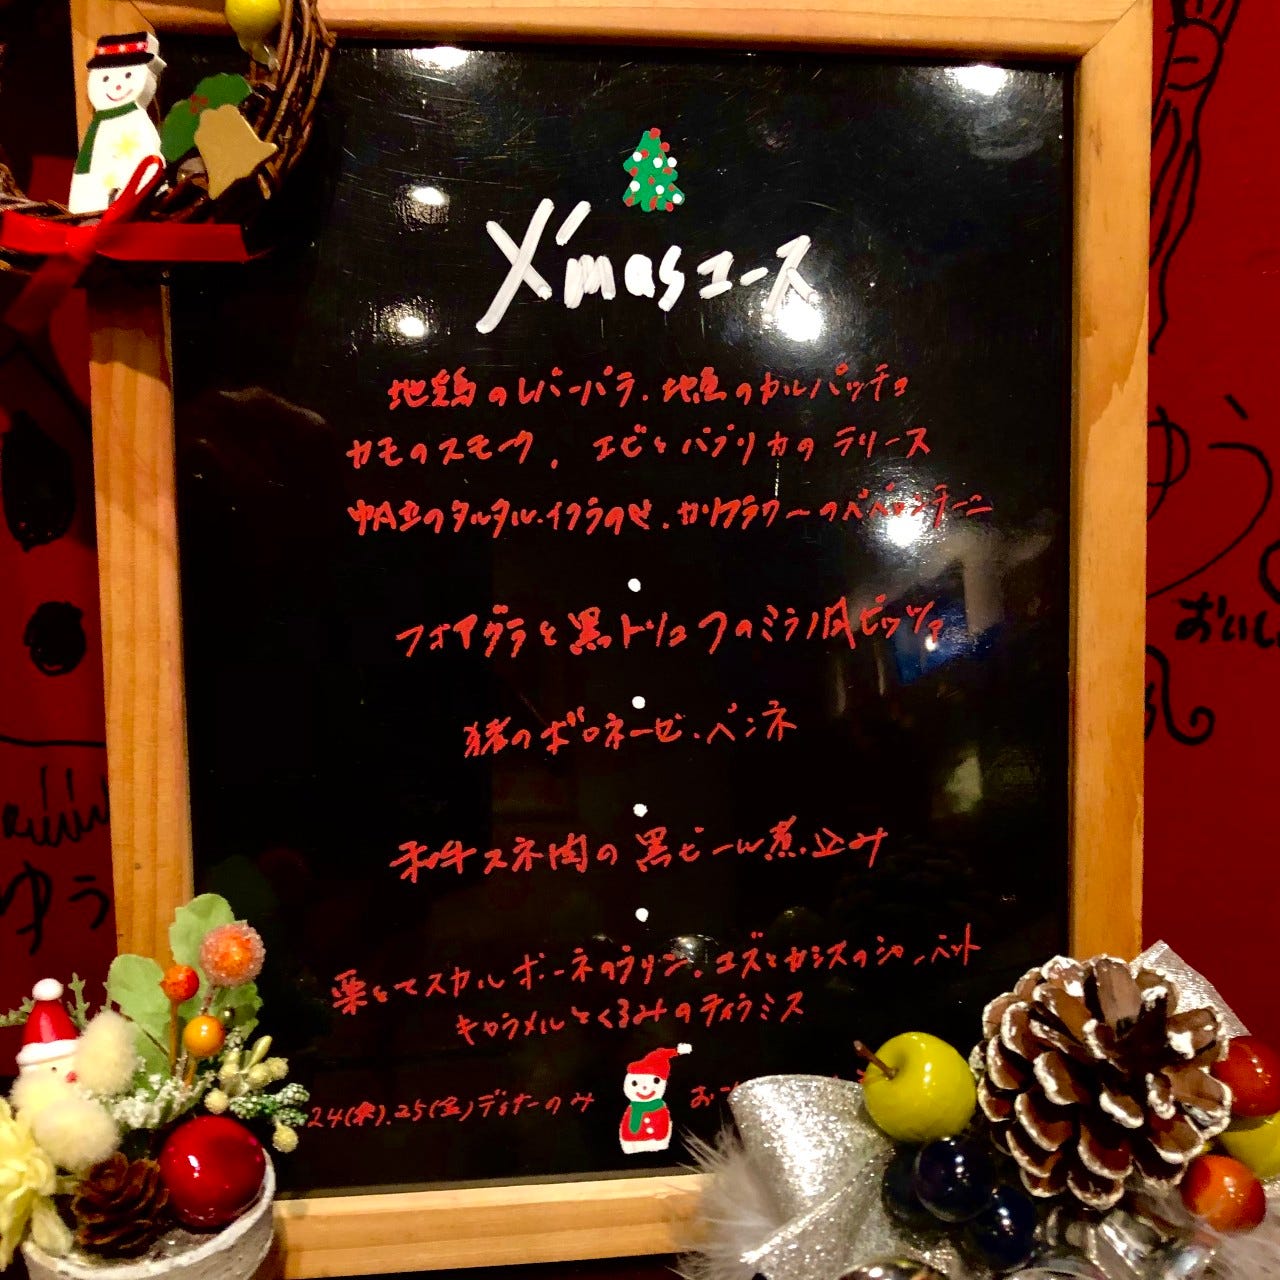 X'masコース
地鶏のレバーパテ、地魚のカルパッチョ
カモのスモーク、エビとパプリカのテリーヌ
帆立のタルタル・イクラのせ、カリフラワーのペペロンチーニ
フォアグラと黒トリュフのミラノ風ピッツァ
猪のボロネーゼ、ペンネ
和牛スネ肉の黒ビール煮込み
栗とマスカルポーネのテリーヌ、ユズとカシスのシャーベット
キャラメルとくるみのティラミス
24(木)、25(金)ディナーのみ
おいし
ゆう